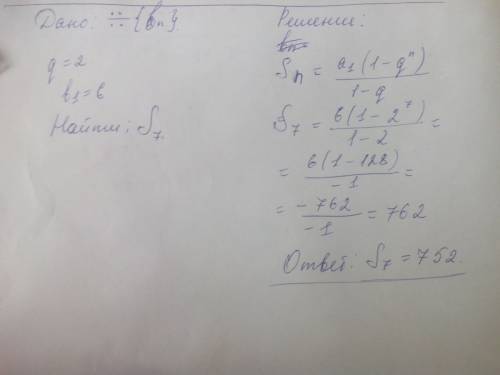 Дано: ∺ {bn}.
q = 2
b1 = 6
Найти: S7.
Решение:
Sn = a1(1-q^n) / 1-q
S7 = 6(1-2^7) / 1-2 =
= 6(1-128) / -1 =
= -762 / -1 = 762
Ответ: S7 = 752.